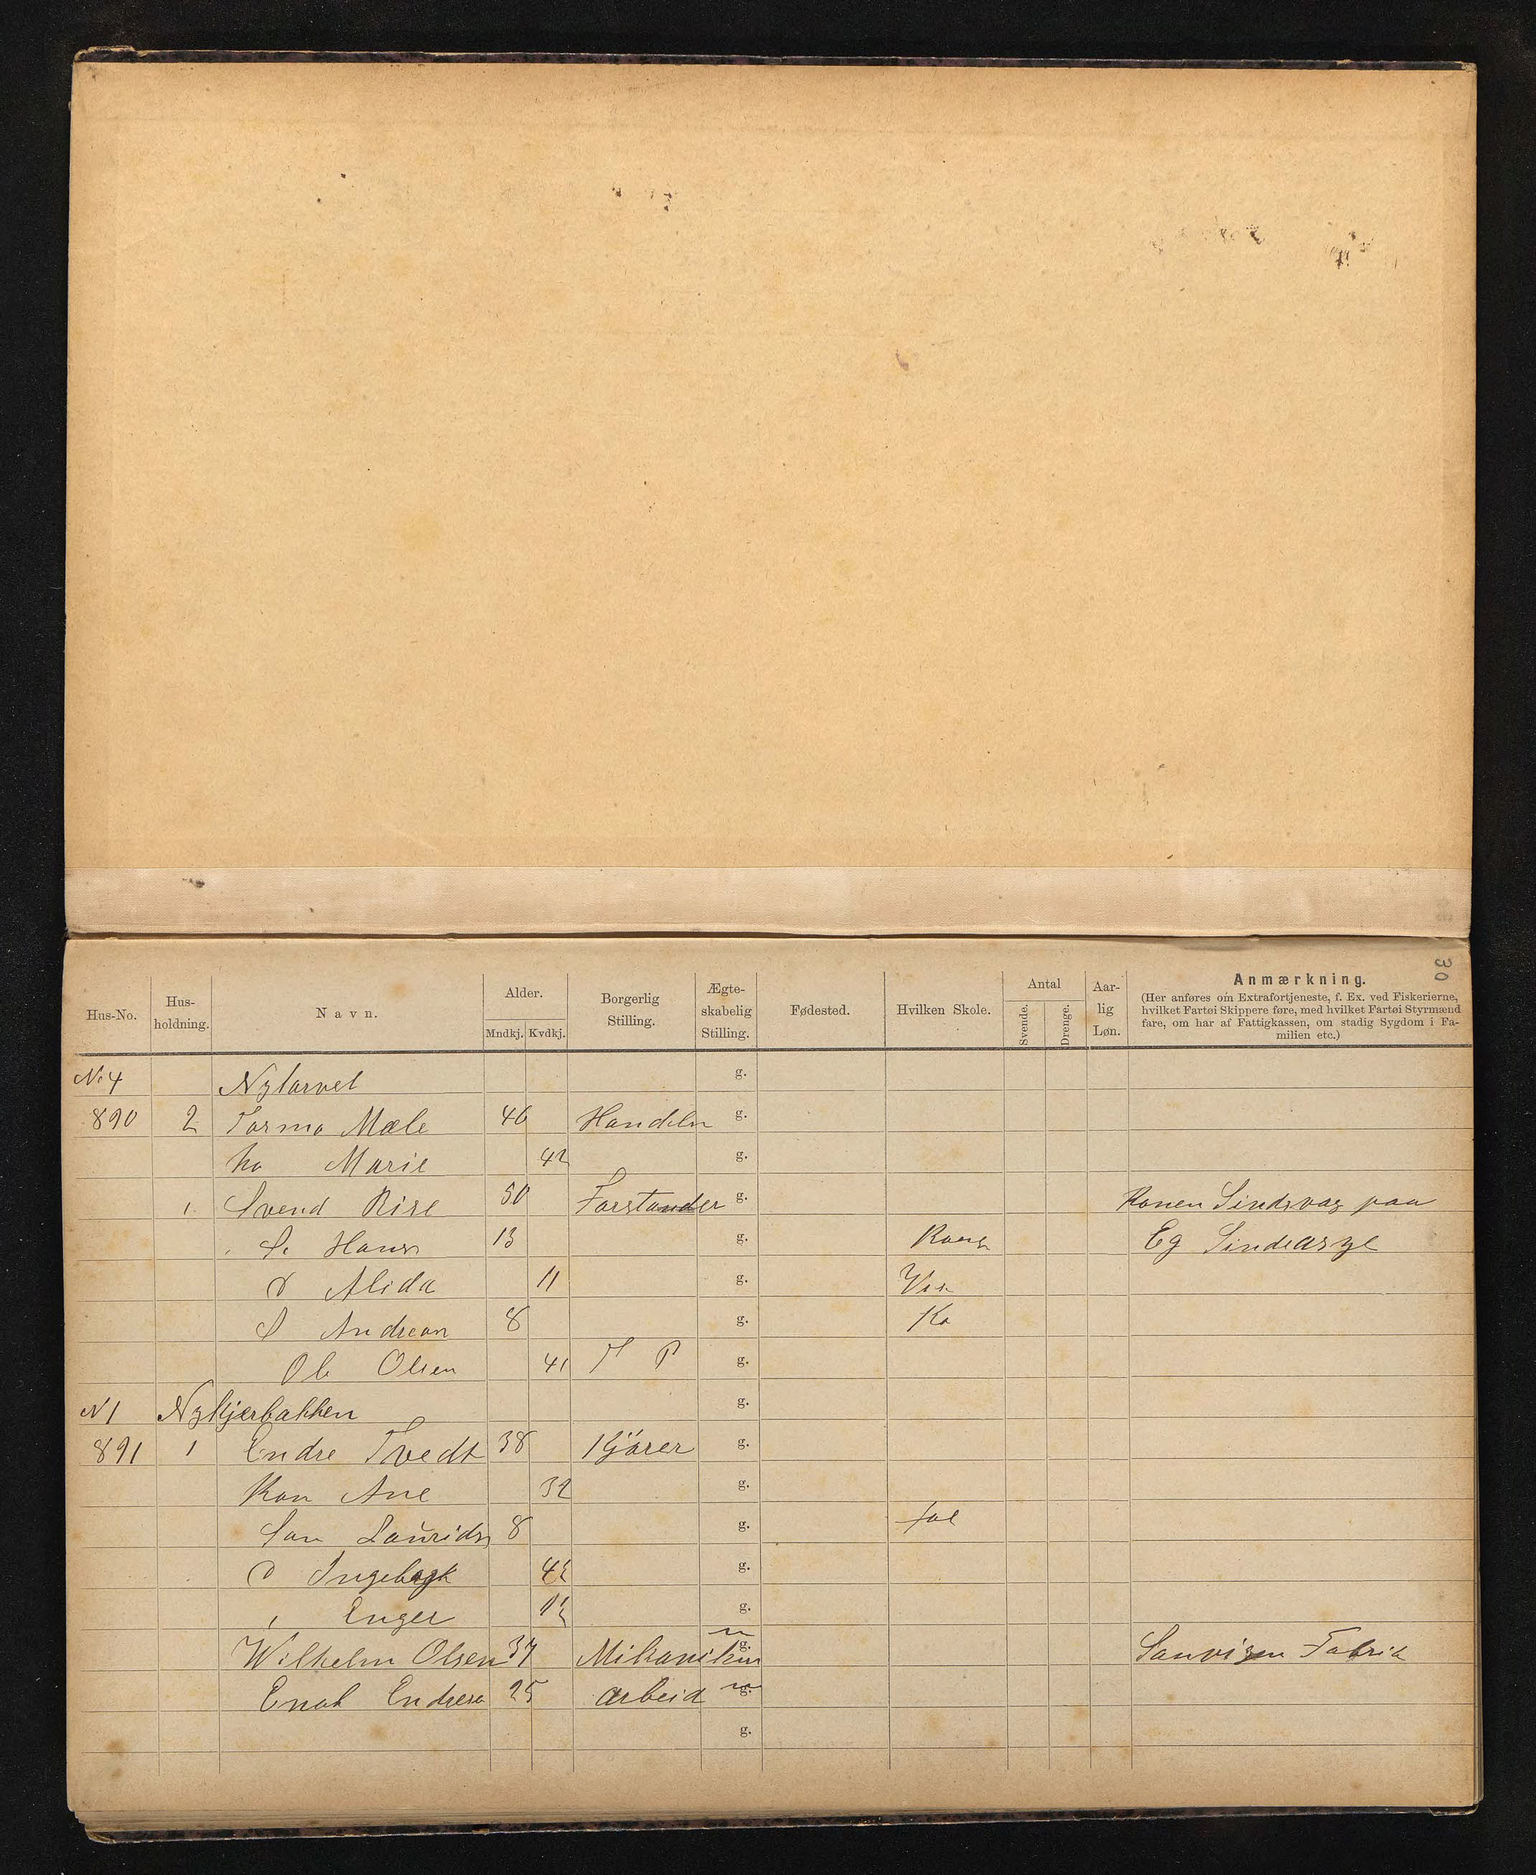 30
Hus-No. Hus-holdning. Navn. Alder. Mndkj. Kvdkj. Borgerlig Stilling. Ægte-skabelig Stilling. Fødested. Hvilken Skole. Antal Svende. Drenge. Aar-lig Løn. Anmærkning.
(Her anføres om Extrafortjeneste, f. Ex. ved Fiskerierne,
hvilket Fartøi Skippere føre, med hvilket Fartøi Styrmænd
fare, om har af Fattigkassen, om stadig Sygdom i Fa-
milien etc.)
No 4 Nytorvet g.
890 2 Tormo Mæle 46 Handeln g.
Marie 42 g.
1 Svend Rise 50 Forstander g. Konen Sindsvag paa
S. Hans 13 g. Eg Sindeasyl
D Alida 11 g.
S Andrean 8 g.
Ole Olsen 41 T P g.
N 1 Nykjerbakken g.
891 1 Endre Tvedt 38 Kjörer g.
Kon Ane 32 g.
Son Laurids 8 g.
D Ingeborgh g.
Enger g.
Wilhelm Olsen 37 Mikaniken g. Sanvigen Fabrik
Enok Endresen 25 arbeid g.
g.